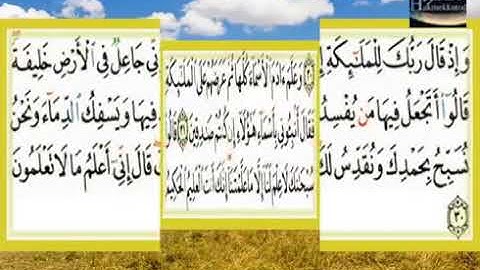 وَإِذْ قَالَ رَبُّكَ لِلْمَلَـٰٓئِكَةِ
قَالُوٓا۟ أَتَجْعَلُ فِيهَا مَن يُفْسِدُ
نُسَبِّحُ بِحَمْدِكَ وَنُقَدِّسُ لَكَ
٣٠
٣٠ وَعَلَّمَ ءَادَمَ ٱلْأَسْمَآءَ كُلَّهَا ثُمَّ عَرَضَهُمْ عَلَى ٱلْمَلَـٰٓئِكَةِ
فَقَالَ أَنۢبِـُٔونِى بِأَسْمَآءِ هَـٰٓؤُلَآءِ إِن كُنتُمْ صَـٰدِقِينَ ٣١ قَالُوا۟
سُبْحَـٰنَكَ لَا عِلْمَ لَنَآ إِلَّا مَا عَلَّمْتَنَآ إِنَّكَ أَنتَ ٱلْعَلِيمُ ٱلْحَكِيمُ
نِّى جَاعِلٌ فِى ٱلْأَرْضِ خَلِيفَةً
فِيهَا وَيَسْفِكُ ٱلدِّمَآءَ وَنَحْنُ
قَالَ إِنِّىٓ أَعْلَمُ مَا لَا تَعْلَمُونَ